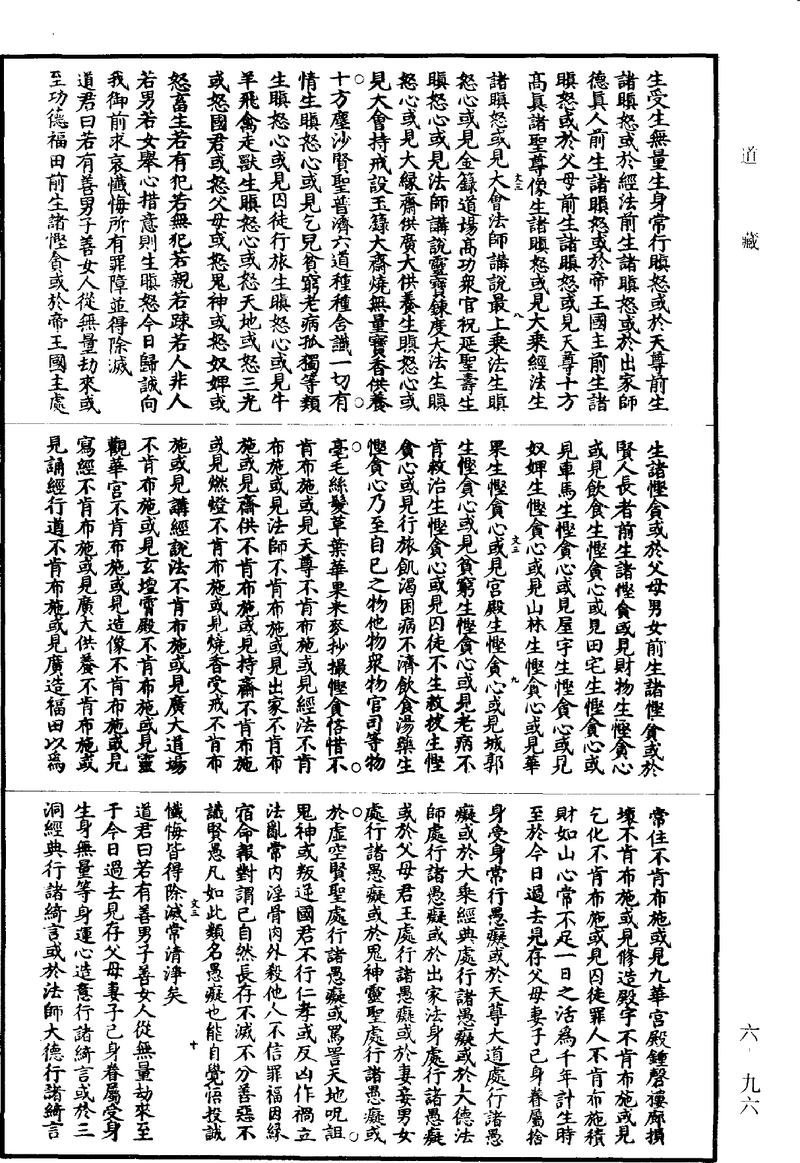 道藏
生受生無量生身常行瞋怒或於天尊前生
諸瞋怒或於經法前生諸瞋怒或於出家師
德真人前生諸瞋怒或於帝王國主前生諸
瞋怒或於父母前生諸瞋怒或見天尊十方
高真諸聖尊像生諸瞋怒或見大乘經法生
文三 八
諸瞋怒或見大會法師講說最上乘法生瞋
怒心或見金籙道場高功衆官祝延聖壽生
瞋怒心或見法師講說靈寶鍊度大法生瞋
怒心或見大緣齋供廣大供養生瞋怒心或
見大會持戒設玉籙大齋燒無量寶香供養
十方塵沙賢聖普濟六道種種含識一切有
情生瞋怒心或見乞兒貧窮老病孤獨等類
生瞋怒心或見囚徒行旅生瞋怒心或見牛
羊飛禽走獸生瞋怒心或怒天地或怒三光
或怒國君或怒父母或怒鬼神或怒奴婢或
怒畜生若有犯若無犯若親若踈若人非人
若男若女舉心措意則生瞋怒今日歸誠向
我御前求哀懺悔所有罪障並得除滅
道君曰若有善男子善女人從無量劫來或
至功德福田前生諸慳貪或於帝王國主處
生諸慳貪或於父母男女前生諸慳貪或於
賢人長者前生諸慳貪或見財物生慳貪心
或見飲食生慳貪心或見田宅生慳貪心或
見車馬生慳貪心或見屋宇生慳貪心或見
奴婢生慳貪心或見山林生慳貪心或見華
文三 九
果生慳貪心或見宮殿生慳貪心或見城郭
生慳貪心或見貧窮生慳貪心或見老病不
肯救治生慳貪心或見囚徒不生救拔生慳
貪心或見行旅飢渴困病不濟飲食湯藥生
慳貪心乃至自己之物他物衆物官司等物
毫毛絲髮草葉華果米麥抄撮慳貪悋惜不
肯布施或見天尊不肯布施或見經法不肯
布施或見法師不肯布施或見出家不肯布
施或見齋供不肯布施或見持齋不肯布施
或見燃燈不肯布施或見燒香受戒不肯布
施或見講經說法不肯布施或見廣大道場
不肯布施或見玄壇寶殿不肯布施或見靈
觀華宮不肯布施或見造像不肯布施或見
寫經不肯布施或見廣大供養不肯布施或
見誦經行道不肯布施或見廣造福田以爲
常住不肯布施或見九華宮殿鍾磬樓廊損
壞不肯布施或見修造殿宇不肯布施或見
乞化不肯布施或見囚徒罪人不肯布施積
財如山心常不足一日之活爲千年計生時
至於今日過去見存父母妻子己身眷屬捨
身受身常行愚癡或於天尊大道處行諸愚
癡或於大乘經典處行諸愚癡或於大德法
師處行諸愚癡或於出家法身處行諸愚癡
或於父母君王處行諸愚癡或於妻妾男女
處行諸愚癡或於鬼神靈聖處行諸愚癡或
於虛空賢聖處行諸愚癡或罵詈天地呪詛
鬼神或叛逆國君不行仁孝或反凶作禍立
法亂常內淫骨肉外殺他人不信罪福因緣
宿命報對謂己自然長存不滅不分善惡不
識賢愚凡如此類名愚癡也能自覺悟投誠
懺悔皆得除滅常清淨矣
文三 十
道君曰若有善男子善女人從無量劫來至
于今日過去見存父母妻子己身眷屬受身
生身無量等身運心造意行諸綺言或於三
洞經典行諸綺言或於法師大德行諸綺言
六-九六